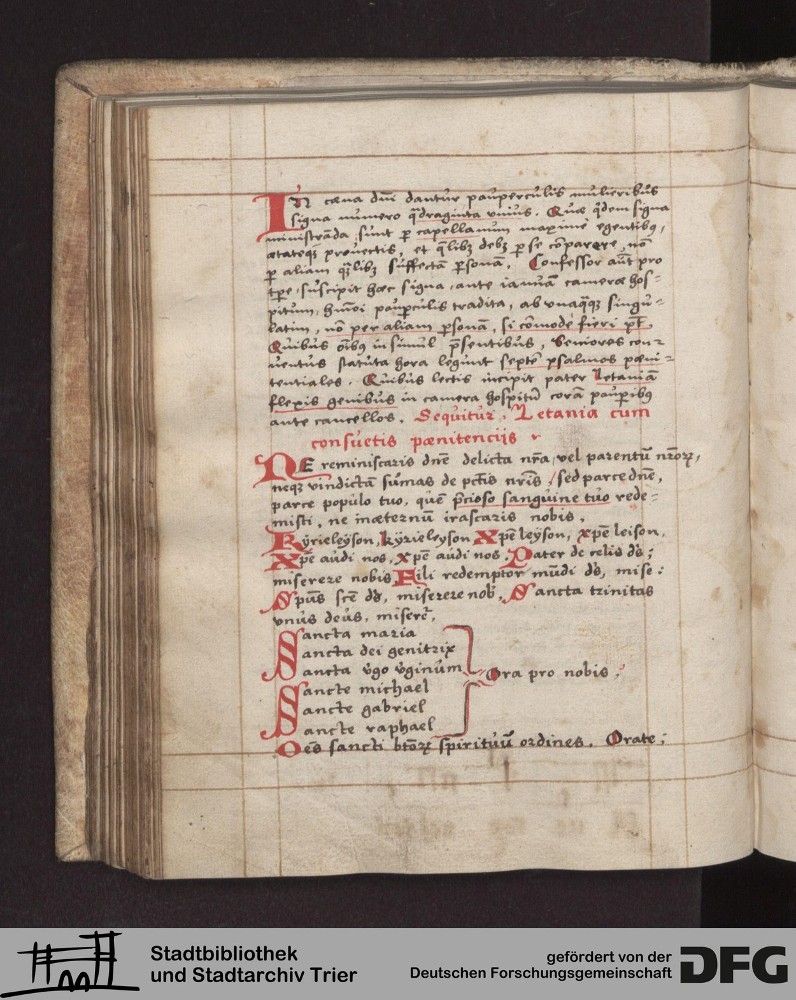 In cæna dnī dantur paupercul̄is mulieribus
signa numero q̄draginta vnius. Quæ q̄dem signa
ministrāda sunt p̱ capellanum maxime egentibꝰ,
ætateqꝫ prouectis, et q̄libꝫ debꝫ p̱ se cōparere, nō
p̱ aliam q̄libꝫ suffectā p̱sonā. Confessor aūt pro
tp̄e suscipit hæc signa, ante ianuā cameræ hos-
pitum, hmōi paup̱culis tradita, ab vnaquaqꝫ singu-
latim, nō per aliam p̱sonā, si cōmode fieri pt̄.
Quibus oībꝰ insimul p̄sentibus, seniores con-
uentus statuta hora legunt septē psalmos pœni-
tentiales. Quibus lectis incipit pater letaniā
flexis genibus in camera hospitū corā paup̱ibꝰ
ante cancellos. Sequitur Letania cum
consuetis pænitencijs
NE reminiscaris dnē delicta nr̄a, vel parentū nr̄orꝫ,
neqꝫ vindictā sumas de pctīs nr̄is, sed parce dnē,
parce populo tuo, quē p̄cioso sanguine tuo rede-
misti, ne in æternū irascaris nobis.
Kyrieleyson, kyrieleyson Xpē leyson, xpē leison,
Xpē audi nos, xpē audi nos. Pater de celis ds̄;
miserere nobis Fili redemptor mūdi ds̄, mise:
Spūs scē ds̄, miserere nob̄, Sancta trinitas
vnus deus, miserē,
Sancta maria
Sancta dei genitrix
Sancta v̄go v̄ginum Ora pro nobis;
Sancte michael
Sancte gabriel
Sancte raphael
Oēs sancti btōrꝫ spirituū ordines. Orate;
Stadtbibliothek
und Stadtarchiv Trier
gefördert von der
Deutschen Forschungsgemeinschaft
DFG